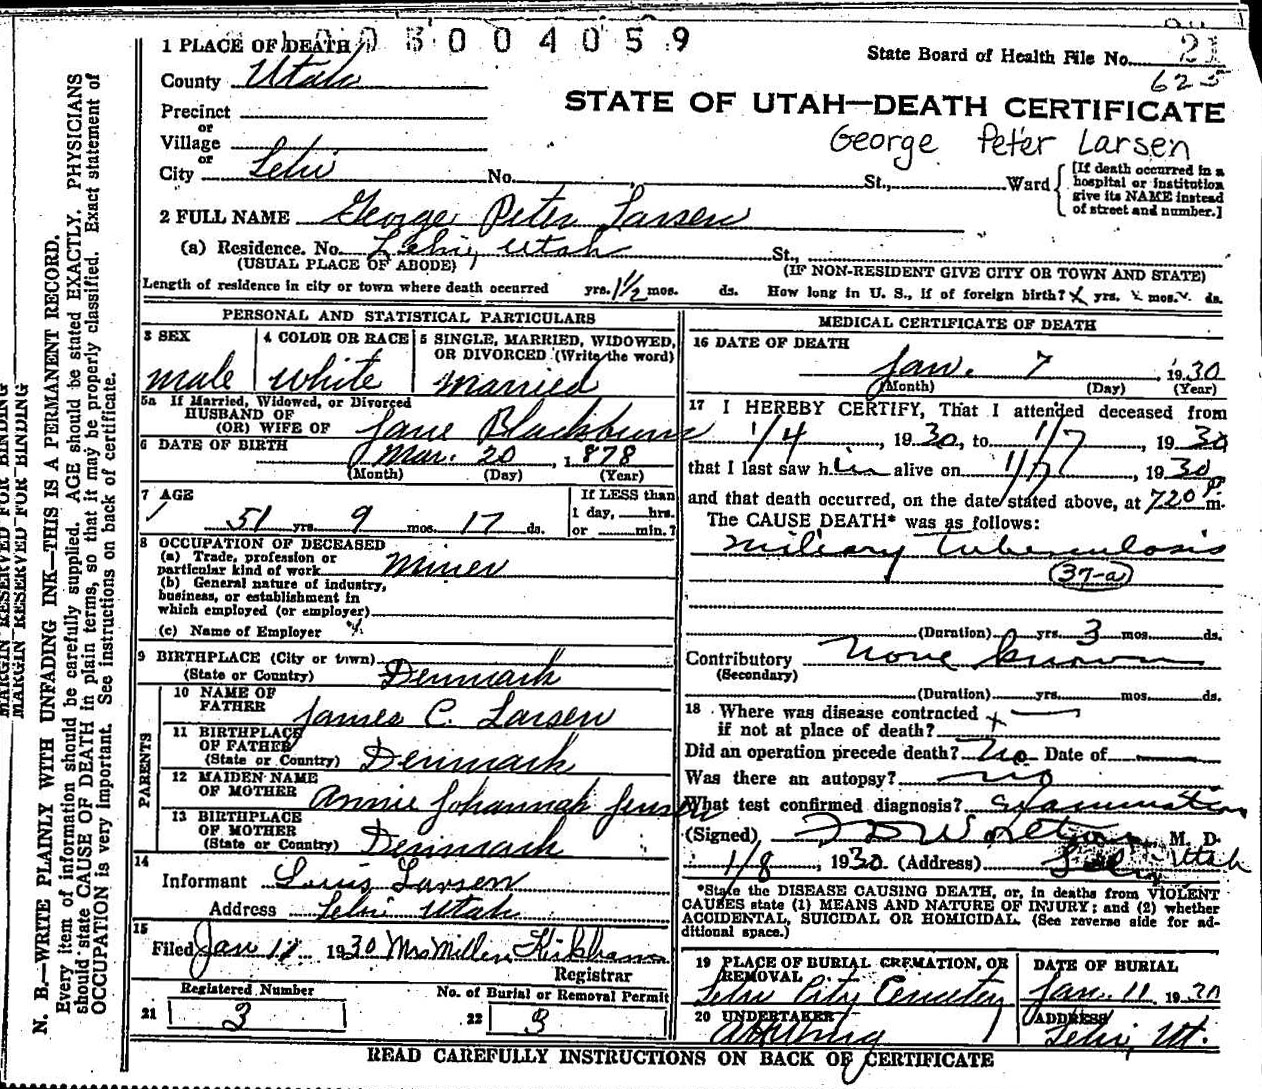 3 0 0 4 0 5 9
1 PLACE OF DEATH
State Board of Health File No. 21
625
County Utah
STATE OF UTAH—DEATH CERTIFICATE
Precinct
or
Village
George Peter Larsen
or
City Lehi No. St., Ward
[If death occurred in a
hospital or institution
give its NAME instead
of street and number.]
2 FULL NAME George Peter Larsen
(a) Residence. No. Lehi, Utah St.,
(USUAL PLACE OF ABODE) (IF NON-RESIDENT GIVE CITY OR TOWN AND STATE)
Length of residence in city or town where death occurred yrs. 1½ mos. ds. How long in U. S., if of foreign birth? x yrs. x mos. ds.
PERSONAL AND STATISTICAL PARTICULARS
3 SEX
male
4 COLOR OR RACE
white
5 SINGLE, MARRIED, WIDOWED,
OR DIVORCED (Write the word)
Married
5a If Married, Widowed, or Divorced
HUSBAND OF
(OR) WIFE OF Jane Blackburn
6 DATE OF BIRTH Mar. 20, 1878
(Month) (Day) (Year)
7 AGE
51 yrs. 9 mos. 17 ds.
If LESS than
1 day, hrs.
or min.?
8 OCCUPATION OF DECEASED
(a) Trade, profession or
particular kind of work Miner
(b) General nature of industry,
business, or establishment in
which employed (or employer)
(c) Name of Employer
9 BIRTHPLACE (City or town)
(State or Country) Denmark
PARENTS
10 NAME OF
FATHER James C. Larsen
11 BIRTHPLACE
OF FATHER
(State or Country) Denmark
12 MAIDEN NAME
OF MOTHER Annie Johannah Jensen
13 BIRTHPLACE
OF MOTHER
(State or Country) Denmark
14
Informant Louis Larsen
Address Lehi Utah
15
Filed Jan 11 1930 Mrs Kirkham
Registrar
Registered Number
21 3
No. of Burial or Removal Permit
22 3
MEDICAL CERTIFICATE OF DEATH
16 DATE OF DEATH
Jan. 7, 1930
(Month) (Day) (Year)
17 I HEREBY CERTIFY, That I attended deceased from
1/4, 1930, to 1/7, 1930
that I last saw him alive on 1/7, 1930
and that death occurred, on the date stated above, at 720 P m.
The CAUSE DEATH* was as follows:
Miliary tuberculosis
37-a
(Duration) yrs. 3 mos. ds.
Contributory None known
(Secondary)
(Duration) yrs. mos. ds.
18 Where was disease contracted
if not at place of death? x
Did an operation precede death? No Date of
Was there an autopsy? no
What test confirmed diagnosis? Examination
(Signed) M. D.
1/8, 1930 (Address) Lehi, Utah
*State the DISEASE CAUSING DEATH, or, in deaths from VIOLENT
CAUSES state (1) MEANS AND NATURE OF INJURY; and (2) whether
ACCIDENTAL, SUICIDAL OR HOMICIDAL. (See reverse side for ad-
ditional space.)
19 PLACE OF BURIAL CREMATION, OR
REMOVAL
Lehi City Cemetery
DATE OF BURIAL
Jan. 11 1930
20 UNDERTAKER
ADDRESS
Lehi, Ut.
READ CAREFULLY INSTRUCTIONS ON BACK OF CERTIFICATE
MARGIN RESERVED FOR BINDING
MARGIN RESERVED FOR BINDING
N. B.—WRITE PLAINLY WITH UNFADING INK—THIS IS A PERMANENT RECORD.
Every item of information should be carefully supplied. AGE should be stated EXACTLY. PHYSICIANS
should state CAUSE OF DEATH in plain terms, so that it may be properly classified. Exact statement of
OCCUPATION is very important. See instructions on back of certificate.